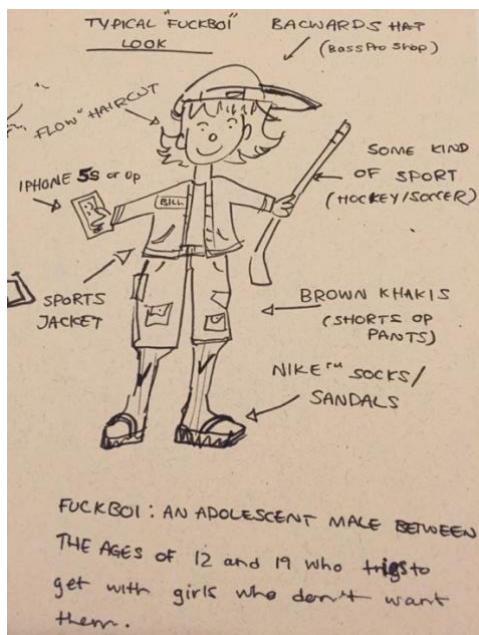 TYPICAL "FUCKBOI"
LOOK
BACWARDS HAT
(BASSPRO SHOP)
"FLOW" HAIRCUT
IPHONE 5S or up
BILL
SOME KIND
OF SPORT
(HOCKEY/SOCCER)
SPORTS
JACKET
BROWN KHAKIS
(SHORTS OP
PANTS)
NIKE™ SOCKS/
SANDALS
FUCKBOI: AN ADOLESCENT MALE BETWEEN
THE AGES OF 12 and 19 who tries to
get with girls who don't want
them.